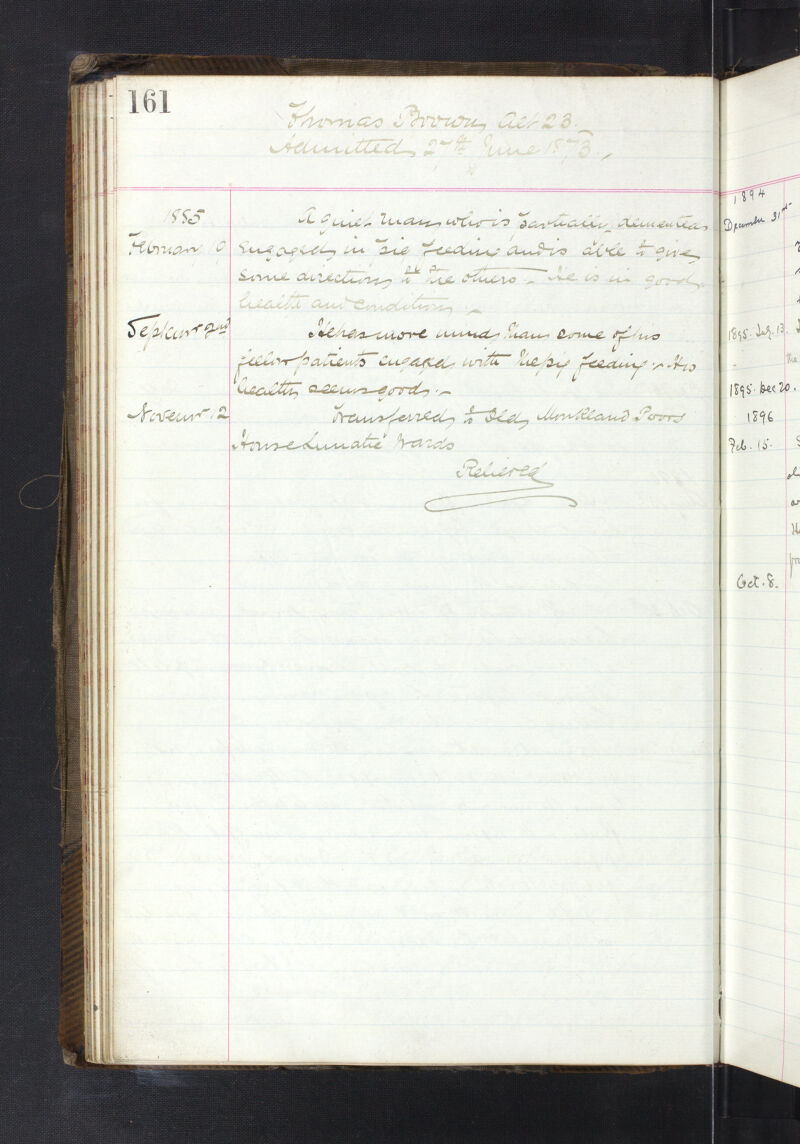 161
Thomas Brown Aet 23.
Admitted 27th June 1873.
1885
February 9
A quiet man who is partially demented
engaged in pig feeding and is able to give
some directions to the others - He is in good
health and condition. -
Septemr 2nd
He has more mind than some of his
fellow patients engaged with the pig feeding. - His
health seems good. -
Novemr. 12
Transferred to Old Monkland Poors
House Lunatic Wards
Relieved
1894
December 31st
1895. July. 13.
1895. Dec 20.
1896
Feb. 15.
Oct. 8.